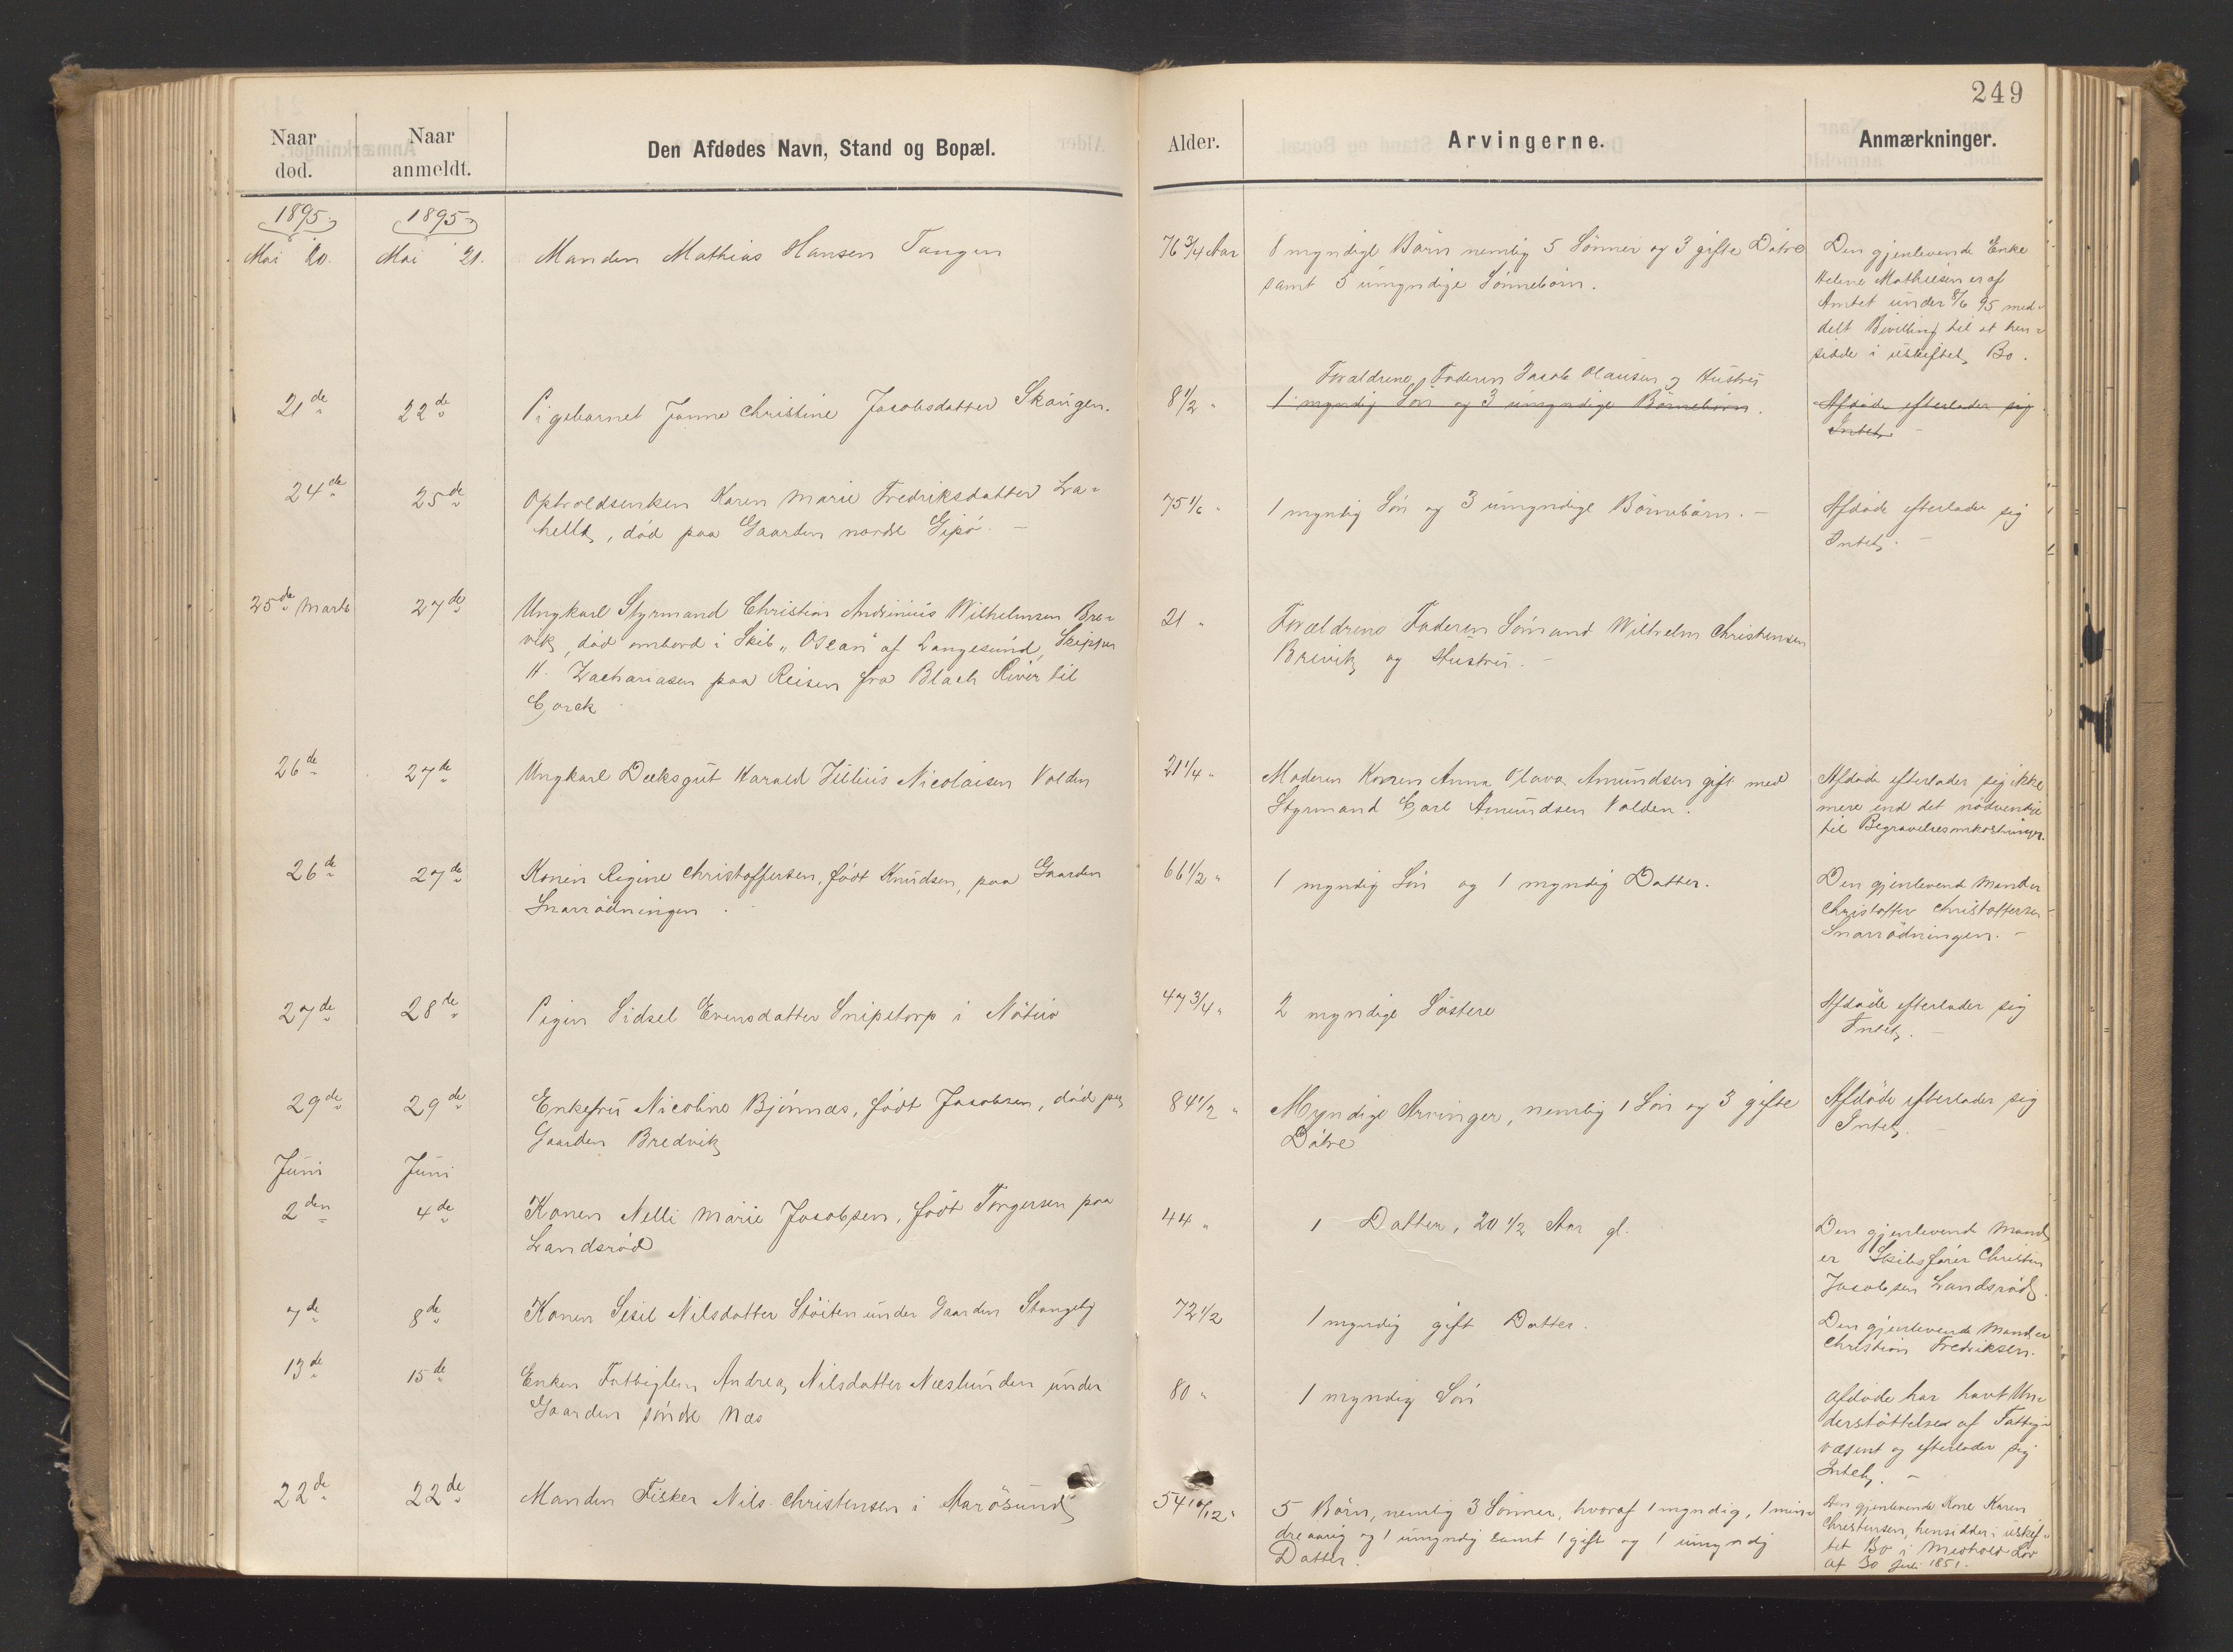 249
Naar død.
Naar anmeldt.
Den Afdødes Navn, Stand og Bopæl.
Alder.
Arvingerne.
Anmærkninger.
1895
1895
Mai 20.
Mai 21.
Manden Mathias Hansen Tangen
76 3/4 Aar
8 myndige Børn nemlig 5 Sønner og 3 gifte Døtre
samt 5 umyndige Sønnebørn.
Den gjenlevende Enke
Helene Mathiesen er af
Amtet under 8/6 95 med-
delt Bevilling til at hen-
sidde i uskiftet Bo.
21de
22de
Pigebarnet Janne Christine Jacobsdatter Skaugen.
8 1/2 "
Forældrene, Faderen Jacob Olausen og Hustru
1 myndig Søn og 3 umyndige Børnebørn.
Afdøde efterlader sig
Intet
24de
25de
Opholdsenken Karen Marie Fredriksdatter La-
helle, død paa Gaarden nordre Gipø. -
75 1/6 "
1 myndig Søn og 3 umyndige Børnebørn. -
Afdøde efterlader sig
Intet. -
25de Marts
27de
Ungkarl Styrmand Christian Andrinius Wilhelmsen Bre-
vik, død ombord i Skib "Osean" af Langesund, Skipper
H. Zachariasen paa Reisen fra Black River til
Corck
21 "
Forældrene Faderen Sømand Wilhelm Christensen
Brevik og Hustru. -
26de
27de
Ungkarl Deeksgut Harald Julius Nicolaisen Volden
21 1/4 "
Moderen Karen Anna Olava Amundsen gift med
Styrmand Carl Amundsen Volden.
Afdøde efterlader sig ikke
mere end det nødvendige
til Begravelsesomkostninger.
26de
27de
Konen Regine Christoffersen, født Knudsen, paa Gaarden
Snarrødningen.
66 1/2 "
1 myndig Søn og 1 myndig Datter.
Den gjenlevende Mand er
Christoffer Christoffersen
Snarrødningen. -
27de
28de
Pigen Sidsel Evensdatter Snipetorp i Nøtterø
47 3/4 "
2 myndige Søstere
Afdøde efterlader sig
Intet. -
29de
29de
Enkefru Nicoline Bjønnæs, født Jacobsen, død paa
Gaarden Bredvik
84 1/2 "
Myndige Arvinger, nemlig 1 Søn og 3 gifte
Døtre
Afdøde efterlader sig
Intet. -
Juni
Juni
2den
4de
Konen Nelli Marie Jacobsen, født Torgersen paa
Landsrød
44 "
1 Datter, 20 1/2 Aar gl.
Den gjenlevende Mand
er Skibsfører Christian
Jacobsen Landsrød.
7de
8de
Konen Sisil Nilsdatter Støiten under Gaarden Stangeby
72 1/2
1 myndig gift Datter.
Den gjenlevende Mand er
Christian Fredriksen.
13de
15de
Enken Fattiglem Andrea Nilsdatter Næslunden under
Gaarden søndre Næs
80 "
1 myndig Søn
Afdøde har havt Un-
derstøttelse af Fattig-
væsent og efterlader sig
Intet. -
22de
22de
Manden Fisker Nils Christensen i Aarøsund
54 10/12 "
5 Børn, nemlig 3 Sønner, hvoraf 1 myndig, 1 min-
dreaarig og 1 umyndig samt 1 gift og 1 umyndig
Datter.
Den gjenlevende Kone Karen
Christensen, hensidder i uskif-
tet Bo i Medhold Lov
af 30 Juli 1851.